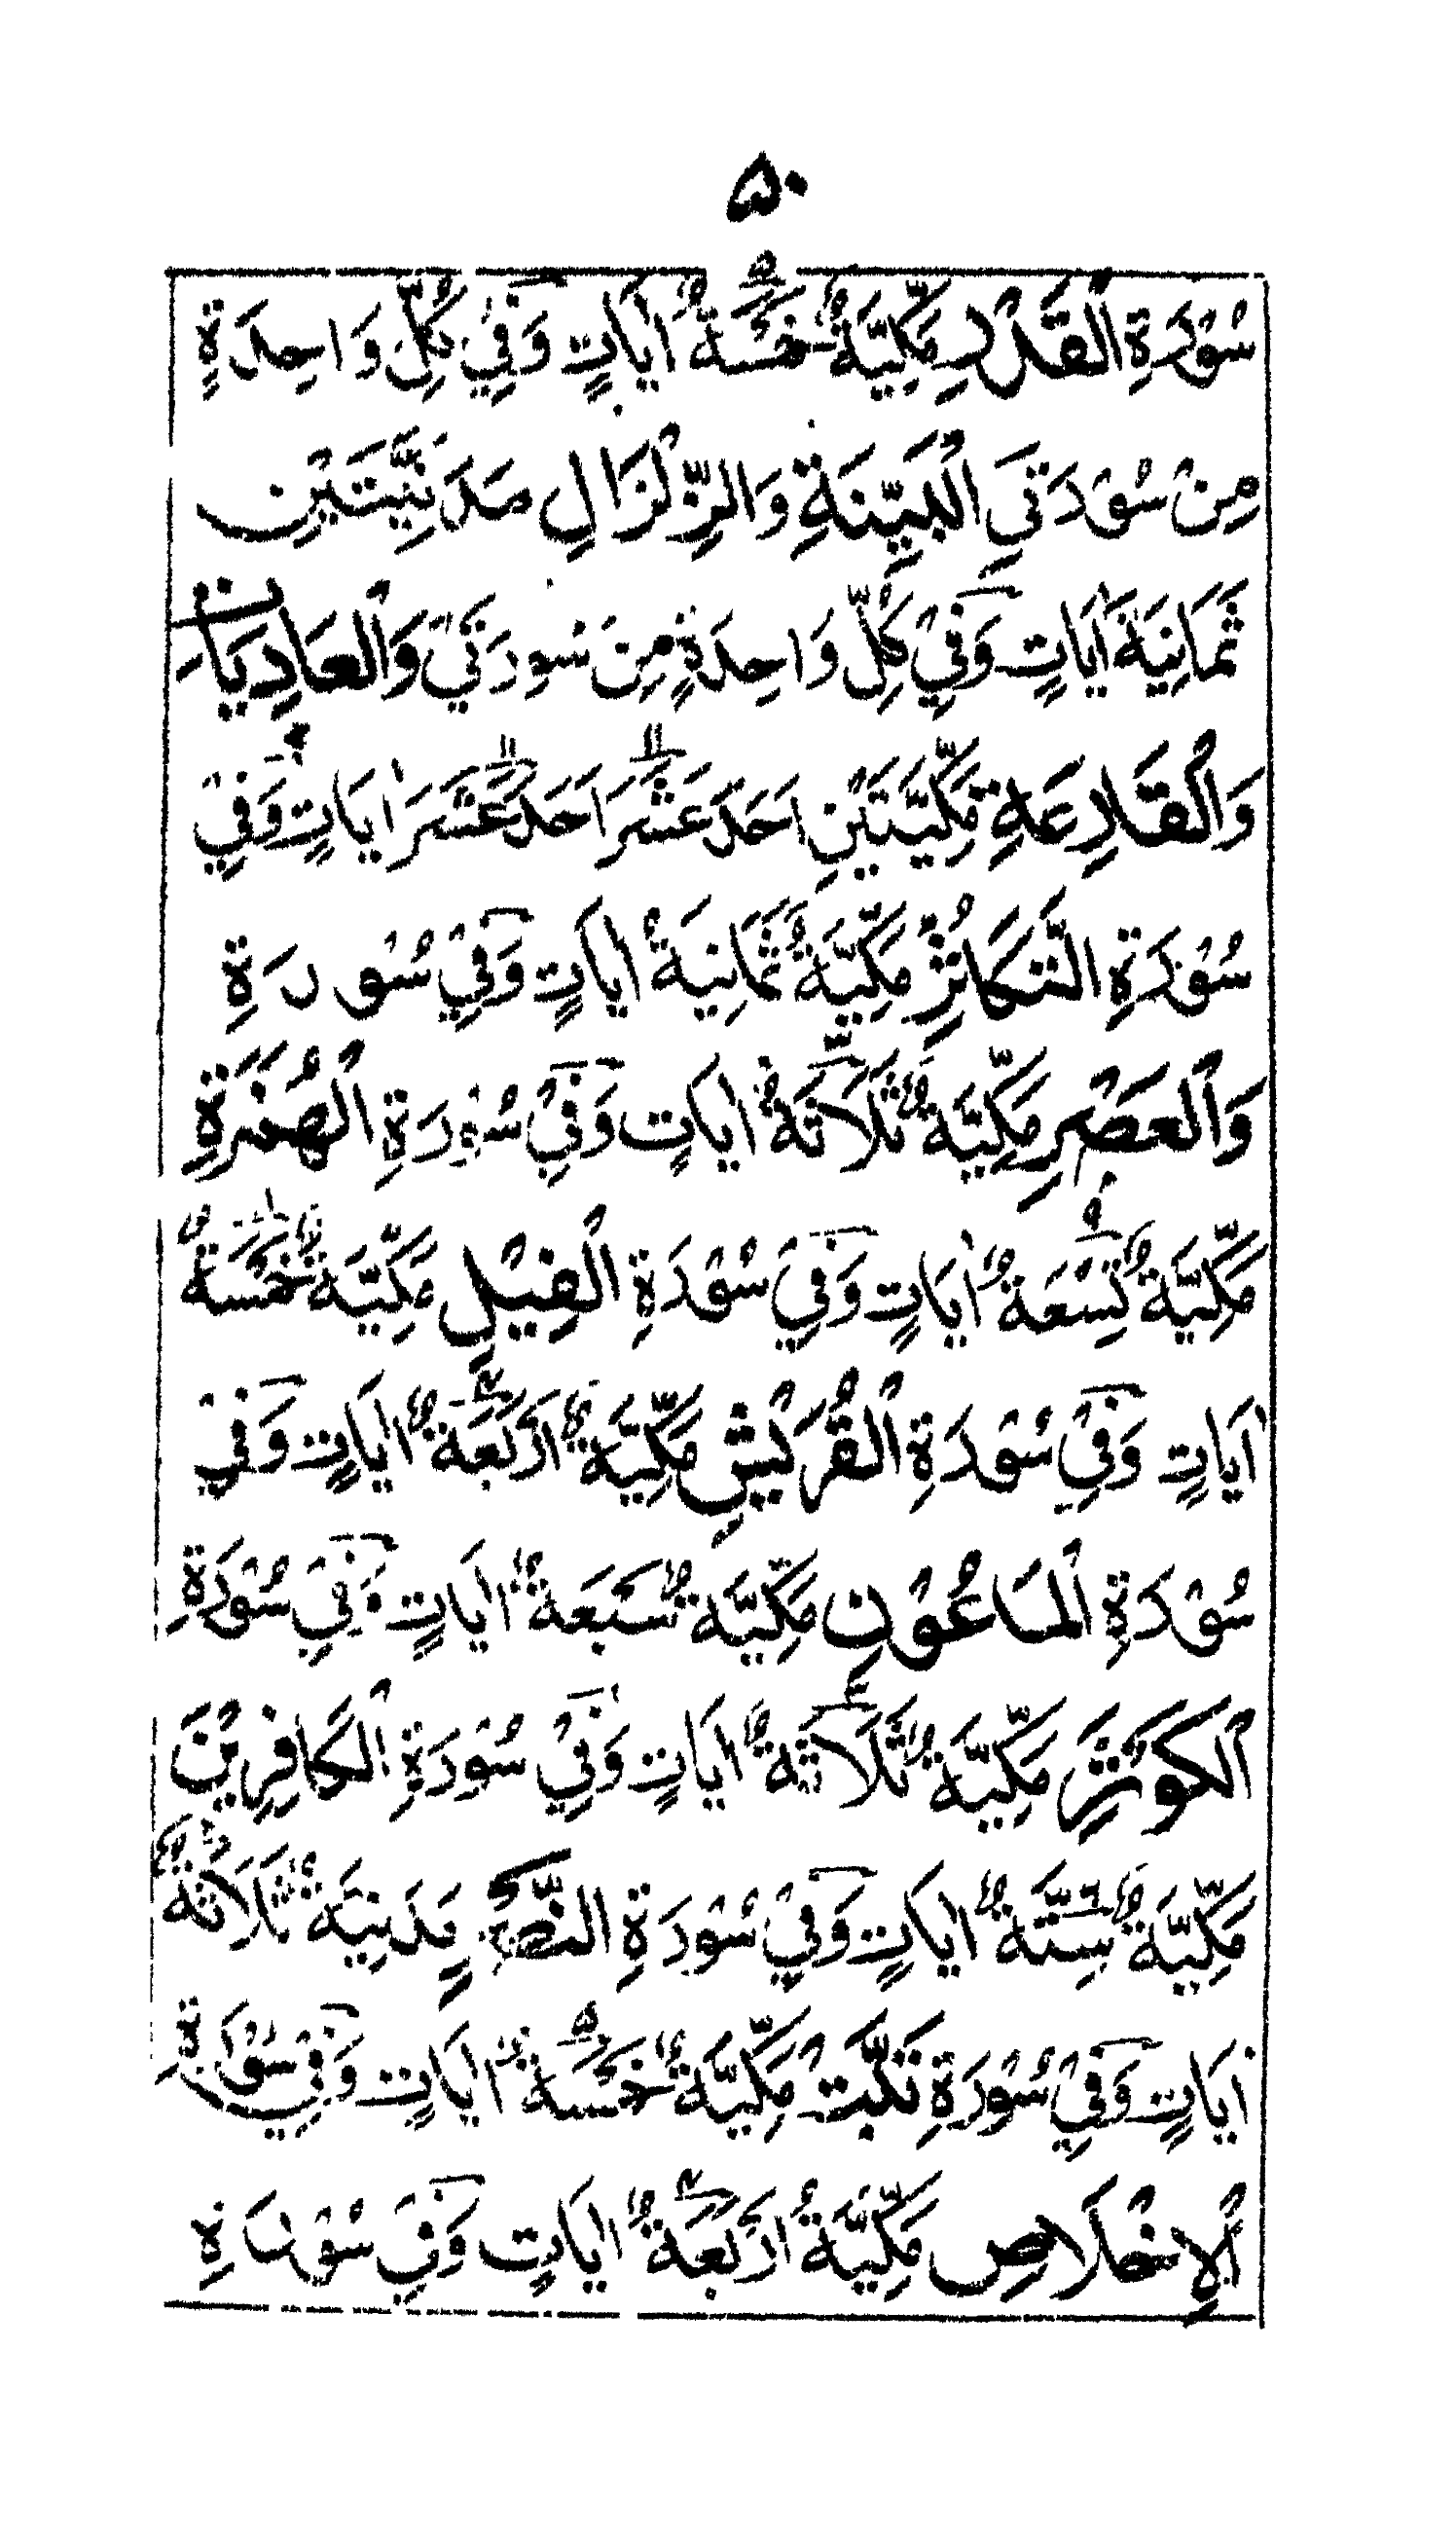 ۵۰
سُوْرَةِ الْقَدْرِ مَكِّيَّةٌ خَمْسَةُ اٰيَاتٍ وَفِيْ كُلِّ وَاحِدَةٍ
مِنْ سُوْرَتَيِ الْبَيِّنَةِ وَالزِّلْزَالِ مَدَنِيَّتَيْنِ
ثَمَانِيَةُ اٰيَاتٍ وَفِيْ كُلِّ وَاحِدَةٍ مِنْ سُوْرَتَيْ وَالْعَادِيَاتِ
وَالْقَارِعَةِ مَكِّيَّتَيْنِ اَحَدَ عَشَرَ اَحَدَ عَشَرَ اٰيَاتٍ وَفِيْ
سُوْرَةِ التَّكَاثُرِ مَكِّيَّةٌ ثَمَانِيَةُ اٰيَاتٍ وَفِيْ سُوْرَةِ
وَالْعَصْرِ مَكِّيَّةٌ ثَلَاثَةُ اٰيَاتٍ وَفِيْ سُوْرَةِ الْهُمَزَةِ
مَكِّيَّةٌ تِسْعَةُ اٰيَاتٍ وَفِيْ سُوْرَةِ الْفِيْلِ مَكِّيَّةٌ خَمْسَةُ
اٰيَاتٍ وَفِيْ سُوْرَةِ الْقُرَيْشِ مَكِّيَّةٌ اَرْبَعَةُ اٰيَاتٍ وَفِيْ
سُوْرَةِ الْمَاعُوْنِ مَكِّيَّةٌ سَبْعَةُ اٰيَاتٍ وَفِيْ سُوْرَةِ
الْكَوْثَرِ مَكِّيَّةٌ ثَلَاثَةُ اٰيَاتٍ وَفِيْ سُوْرَةِ الْكَافِرِيْنَ
مَكِّيَّةٌ سِتَّةُ اٰيَاتٍ وَفِيْ سُوْرَةِ النَّصْرِ مَدَنِيَّةٌ ثَلَاثَةُ
اٰيَاتٍ وَفِيْ سُوْرَةِ تَبَّتْ مَكِّيَّةٌ خَمْسَةُ اٰيَاتٍ وَفِيْ سُوْرَةِ
الْاِخْلَاصِ مَكِّيَّةٌ اَرْبَعَةُ اٰيَاتٍ وَفِيْ سُوْرَةِ